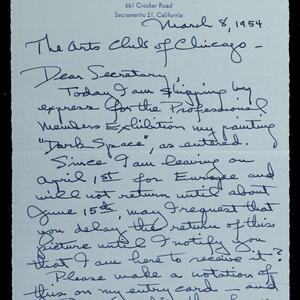 661 Crocker Road
Sacramento 21, California
March 8, 1954
The Arts Club of Chicago -
Dear Secretary,
Today I am shipping by
express for the Professional
Members Exhibition my painting
"Dark Space", as entered.
Since I am leaving on
April 1st for Europe and
will not return until about
June 15th, may I request that
you delay the return of this
picture until I notify you
that I am here to receive it?
Please make a notation of
this on my entry card - and